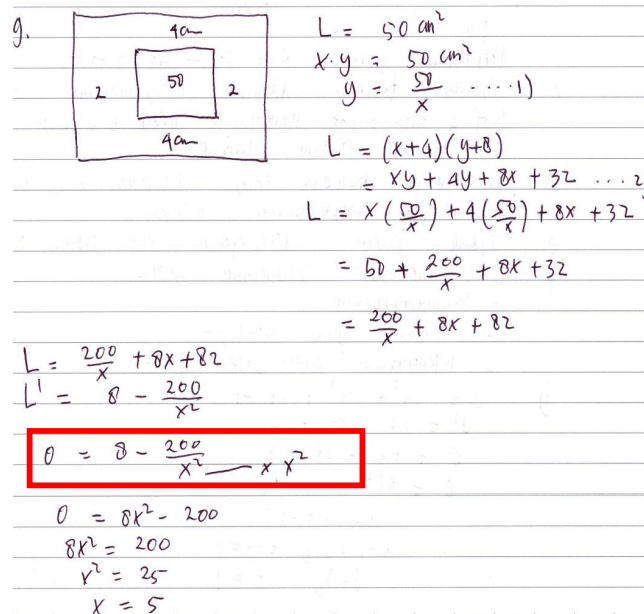 9.
4cm
2 50 2
4cm
L = 50 cm²
x.y = 50 cm²
y = 50/x ....1)
L = (x+4)(y+8)
= xy + 4y + 8x + 32 ...2
L = x(50/x) + 4(50/x) + 8x + 32
= 50 + 200/x + 8x + 32
= 200/x + 8x + 82
L = 200/x + 8x + 82
L' = 8 - 200/x²
0 = 8 - 200/x² — x x²
0 = 8x² - 200
8x² = 200
x² = 25
x = 5